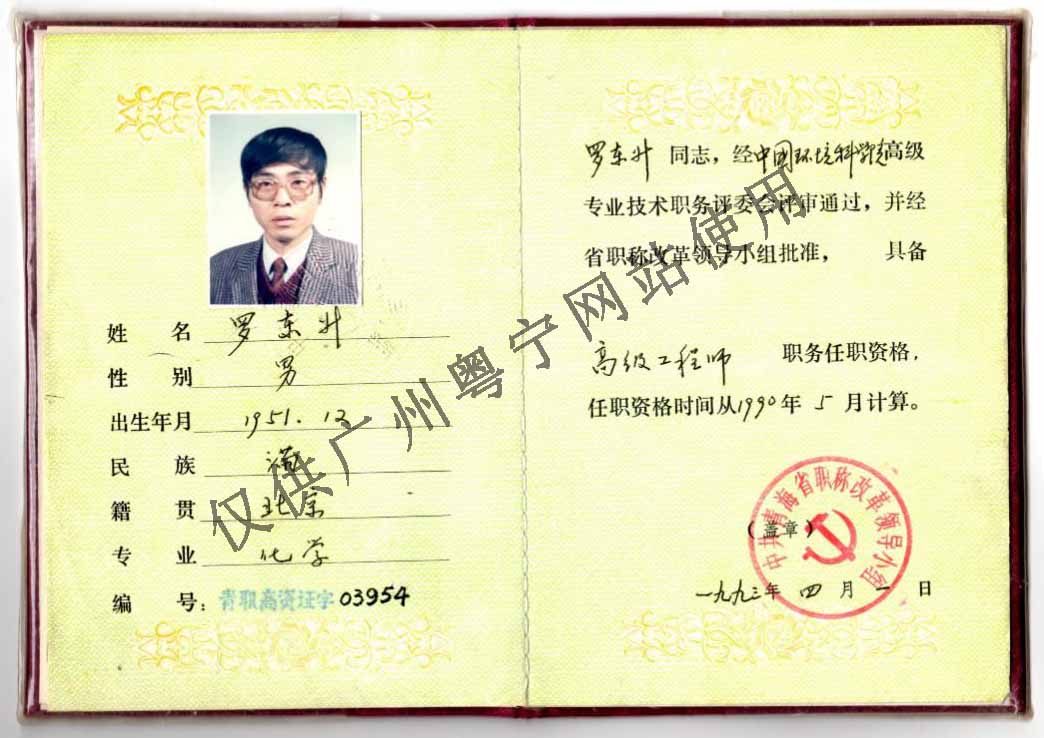 姓 名 罗东升
性 别 男
出生年月 1951.12
民 族 满
籍 贯 北京
专 业 化学
编 号：青职高资证字 03954
罗东升 同志，经中国环境科学院高级
专业技术职务评委会评审通过，并经
省职称改革领导小组批准， 具备
高级工程师 职务任职资格，
任职资格时间从1990年5月计算。
中共青海省职称改革领导小组
（盖章）
一九九三年 四 月 一 日
仅供广州粤宁网站使用